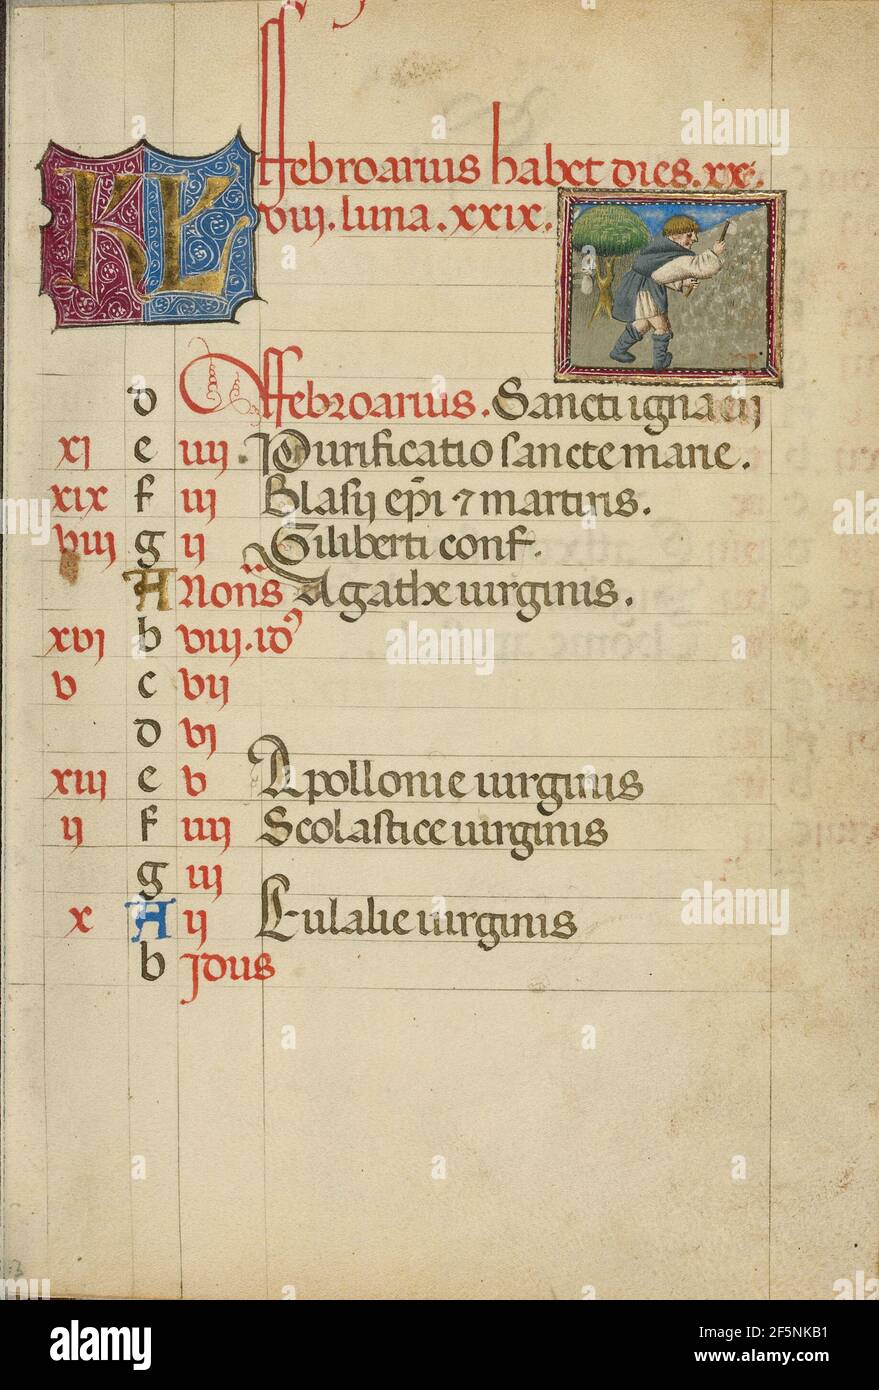 KL ffebroarius habet dies. xx.
viii. luna. xxix.
d ffebroarius. Sancti ignacii
xi e iiii. Purificatio sancte marie.
xix f iii Blasij epi ⁊ martiris.
viii g ii Giliberti conf.
A Nonis Agathe uirginis.
xvi b viii. idꝰ
v c vii
d vi
xiii e v Apollonie uirginis
ii f iiii Scolastice uirginis
g iii
x A ii Eulalie uirginis
b jdus
alamy
alamy
Image ID: 2F5NKB1
www.alamy.com